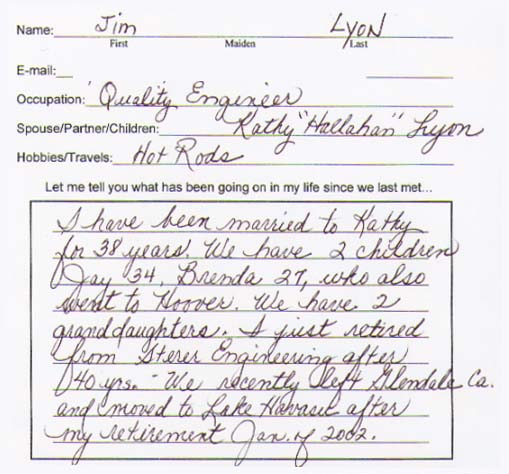 Name: Jim Lyon
First Maiden Last
E-mail:
Occupation: Quality Engineer
Spouse/Partner/Children: Kathy "Hallahan" Lyon
Hobbies/Travels: Hot Rods
Let me tell you what has been going on in my life since we last met...
I have been married to Kathy
for 38 years. We have 2 children
Jay 34, Brenda 27, who also
went to Hoover. We have 2
granddaughters. I just retired
from Sterer Engineering after
40 yrs. We recently left Glendale Ca.
and moved to Lake Havasu after
my retirement Jan. of 2002.